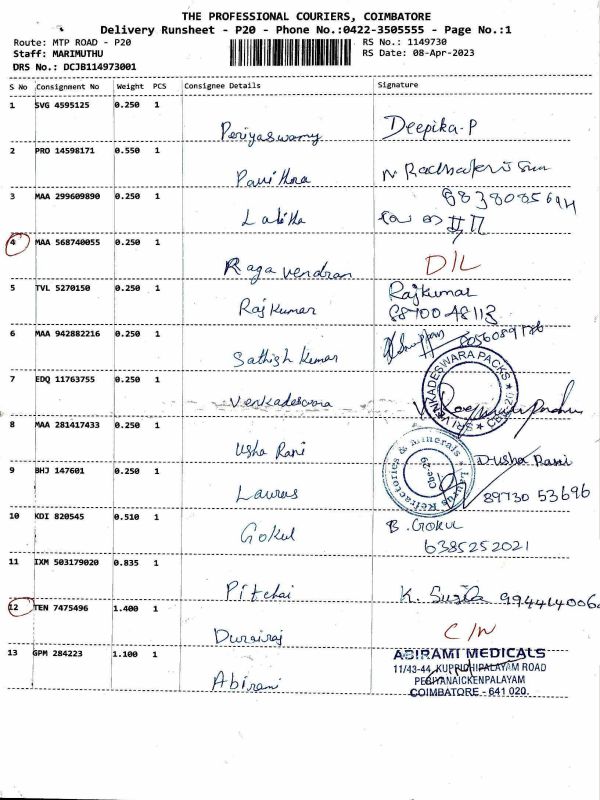 THE PROFESSIONAL COURIERS, COIMBATORE
Delivery Runsheet - P20 - Phone No.:0422-3505555 - Page No.:1
Route: MTP ROAD - P20
RS No.: 1149730
Staff: MARIMUTHU
RS Date: 08-Apr-2023
DRS No.: DCJB114973001
S No Consignment No Weight PCS Consignee Details Signature
1 SVG 4595125 0.250 1
Periyaswamy Deepika.P
2 PRO 14598171 0.550 1
Pavithra
3 MAA 299609890 0.250 1
Lalitha
4 MAA 568740055 0.250 1
Ragavendran D/L
5 TVL 5270150 0.250 1 Rajkumar
Rajkumar 8870048113
6 MAA 942882216 0.250 1
Sathish Kumar 8056089176
7 EDQ 11763755 0.250 1
Venkadeswara
SRI VENKADESWARA PACKS
8 MAA 281417433 0.250 1
Usha Rani
9 BHJ 147601 0.250 1 D.Usha Rani
Laurus 89730 53696
Laurus Refractories & Minerals
Cbe-29
10 KDI 820545 0.510 1 B.Gokul
Gokul 6385252021
11 IXM 503179020 0.835 1
Pitchai K.
12 TEN 7475496 1.400 1
Durairaj C/N
13 GPM 284223 1.100 1
Abirami
ABIRAMI MEDICALS
11/43-44, KUPPICHIPALAYAM ROAD
PERIYANAICKENPALAYAM
COIMBATORE - 641 020.